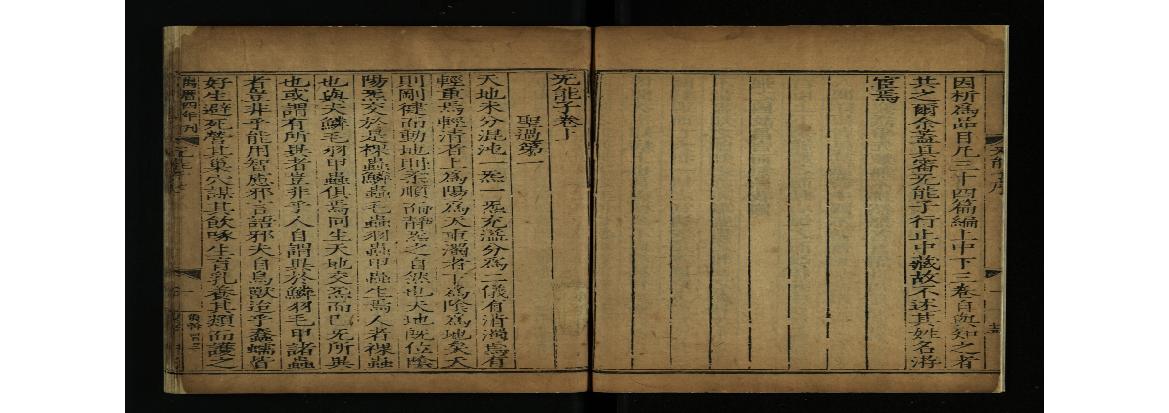 因析為品目凡三十四篇編上中下三卷自與知之者
共之爾余蓋具審无能子行止中藏故不述其姓名游
宦焉
无能子卷上
聖過第一
天地未分混沌一炁一炁充溢分為二儀有清濁焉有
輕重焉輕清者上為陽為天重濁者下為陰為地矣天
則剛健而動地則柔順而靜炁之自然也天地既位陰
陽炁交於是裸蟲鱗蟲毛蟲羽蟲甲蟲生焉人者裸蟲
也與夫鱗毛羽甲蟲俱焉同生天地交炁而已无所異
也或謂有所異者豈非乎人自謂異於鱗羽毛甲諸蟲
者豈非乎能用智慮邪言語邪夫自鳥獸迨乎蠢蠕皆
好生避死營其巢穴謀其飲啄生育乳養其類而護之
萬曆四年刊